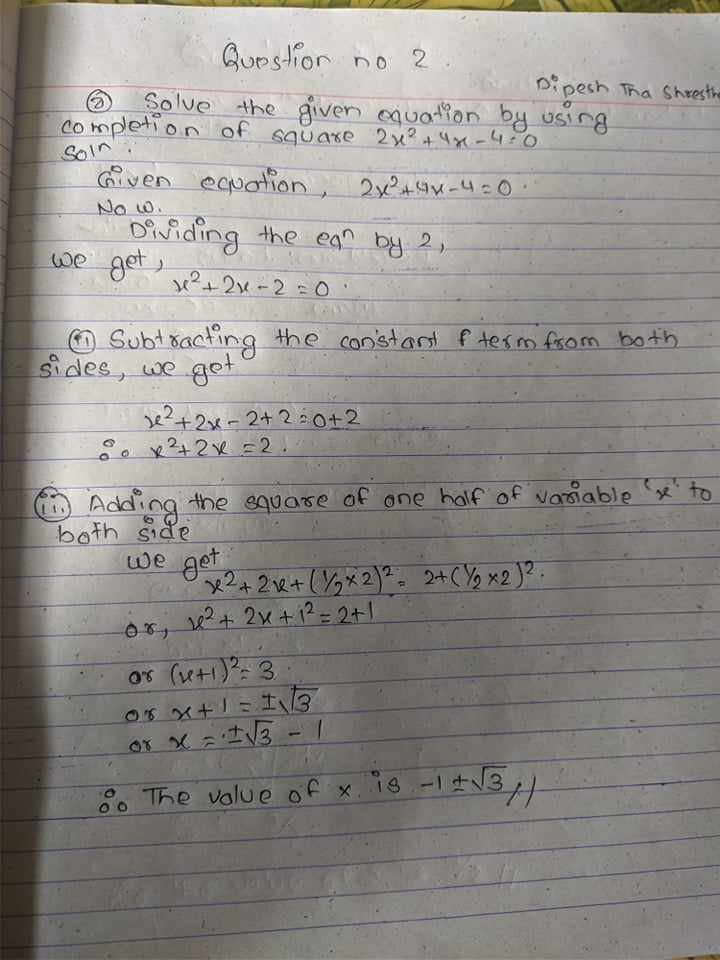 Question no 2.
Dipesh Tha Shresth
② Solve the given equation by using
completion of square 2x²+4x-4=0
Soln:
Given equation, 2x²+4x-4=0.
Now.
Dividing the eqⁿ by 2,
we get,
x²+2x-2=0.
(ii) Subtracting the constant f term from both
sides, we get
x²+2x-2+2=0+2
∴ x²+2x=2.
(iii) Adding the square of one half of variable 'x' to
both side
we get
x²+2x+(1/2×2)²= 2+(1/2×2)².
or, x²+2x+1²=2+1
or (x+1)²=3
or x+1=±√3
or x=±√3-1
∴ The value of x is -1±√3//